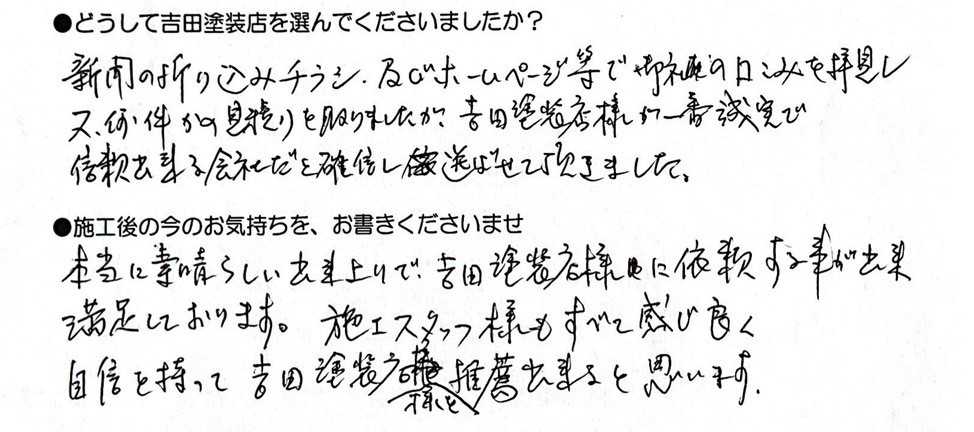 ●どうして吉田塗装店を選んでくださいましたか？
新聞の折り込みチラシ、及びホームページ等で御社の口こみを拝見し
又、何件かの見積りを取りましたが、吉田塗装店様が一番誠実で
信頼出来る会社だと確信し選ばせて頂きました。
●施工後の今のお気持ちを、お書きくださいませ
本当に素晴らしい出来上りで、吉田塗装店様に依頼する事が出来
満足しております。施工スタッフ様もすべて感じ良く
自信を持って吉田塗装店様を推薦出来ると思います。